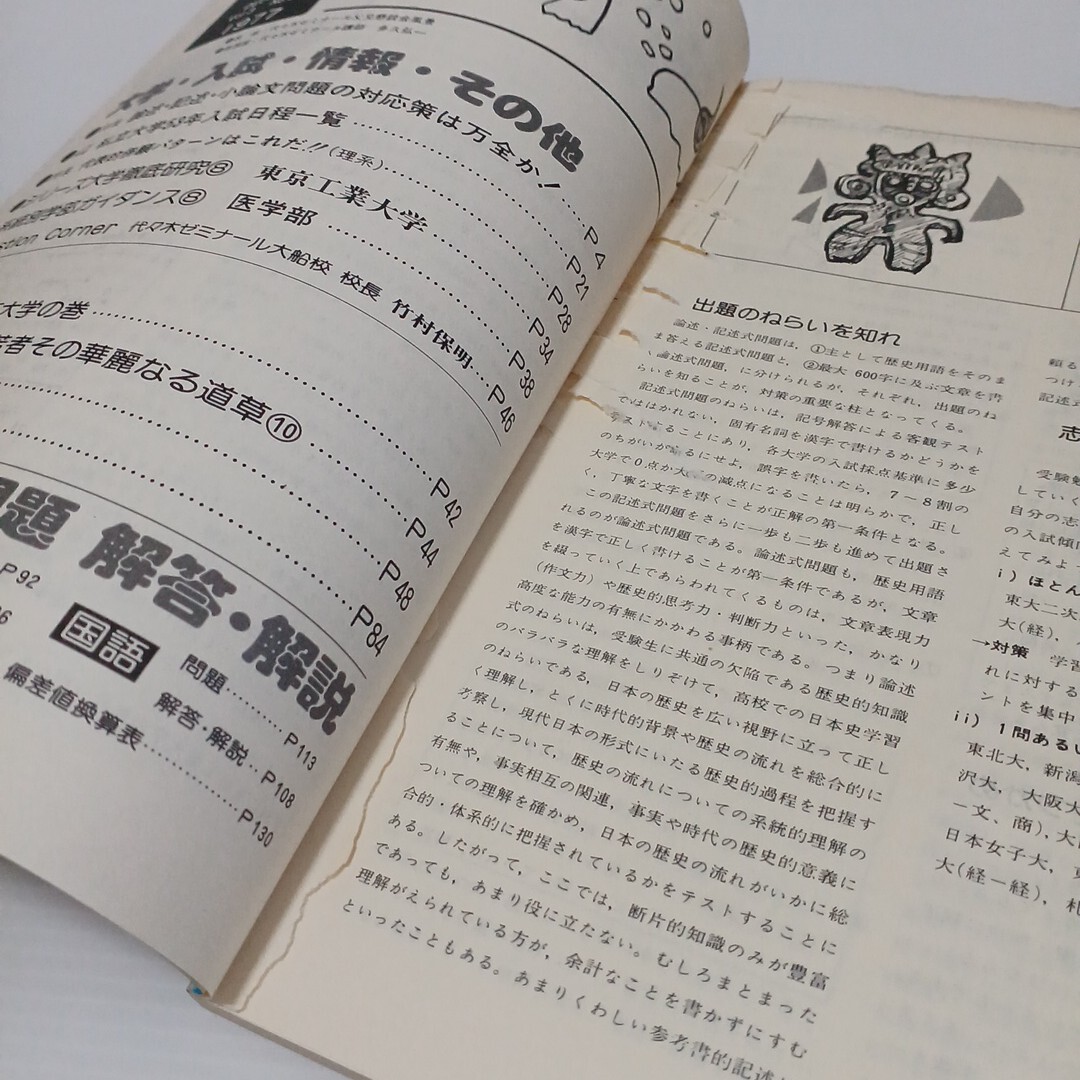 1977
大学・入試・情報・その他
論述・記述・小論文問題の対応策は万全か!
P4
私立大学53年入試日程一覧
P21
パターンはこれだ!!(理系)
P28
シリーズ大学徹底研究⑧ 東京工業大学
P34
ガイダンス⑧ 医学部
P38
Corner 代々木ゼミナール大船校 校長 竹村保明
P46
大学の巻
P42
者その華麗なる道草⑩
P44
P48
P84
問題 解答・解説
P92
国語
問題
P113
解答・解説
P108
偏差値換算表
P130
出題のねらいを知れ
論述・記述式問題は,①主として歴史用語をそのま
ま答える記述式問題と,②最大 600字に及ぶ文章を書
く論述式問題,に分けられるが,それぞれ,出題のね
らいを知ることが,対策の重要な柱となってくる。
記述式問題のねらいは,記号解答による客観テスト
でははかれない,固有名詞を漢字で書けるかどうかを
テストすることにあり,各大学の入試採点基準に多少
のちがいがあるにせよ,誤字を書いたら,7~8割の
大学で0点か大
の減点になることは明らかで,正し
く,丁寧な文字を書くことが正解の第一条件となる。
この記述式問題をさらに一歩も二歩も進めて出題さ
れるのが論述式問題である。論述式問題も,歴史用語
を漢字で正しく書けることが第一条件であるが,文章
を綴っていく上であらわれてくるものは,文章表現力
(作文力)や歴史的思考力・判断力といった,かなり
高度な能力の有無にかかわる事柄である。つまり論述
式のねらいは,受験生に共通の欠陥である歴史的知識
のバラバラな理解をしりぞけて,高校での日本史学習
のねらいである,日本の歴史を広い視野に立って正し
く理解し,とくに時代的背景や歴史の流れを総合的に
考察し,現代日本の形式にいたる歴史的過程を把握す
ることについて,歴史の流れについての系統的理解の
有無や,事実相互の関連,事実や時代の歴史的意義に
ついての理解を確かめ,日本の歴史の流れがいかに総
合的・体系的に把握されているかをテストすることに
ある。したがって,ここでは,断片的知識のみが豊富
であっても,あまり役に立たない。むしろまとまった
理解がえられている方が,余計なことを書かずにすむ
といったこともある。あまりくわしい参考書的記述
頼る
つけ
記述式
志
受験勉
していく
自分の志
の入試傾
えてみよ
i) ほとん
東大二次
大(経),
→対策 学習
れに対する
ントを集中
ii) 1問ある
東北大,新潟
沢大,大阪大
一文,商),大
日本女子大,
大(経一経),札